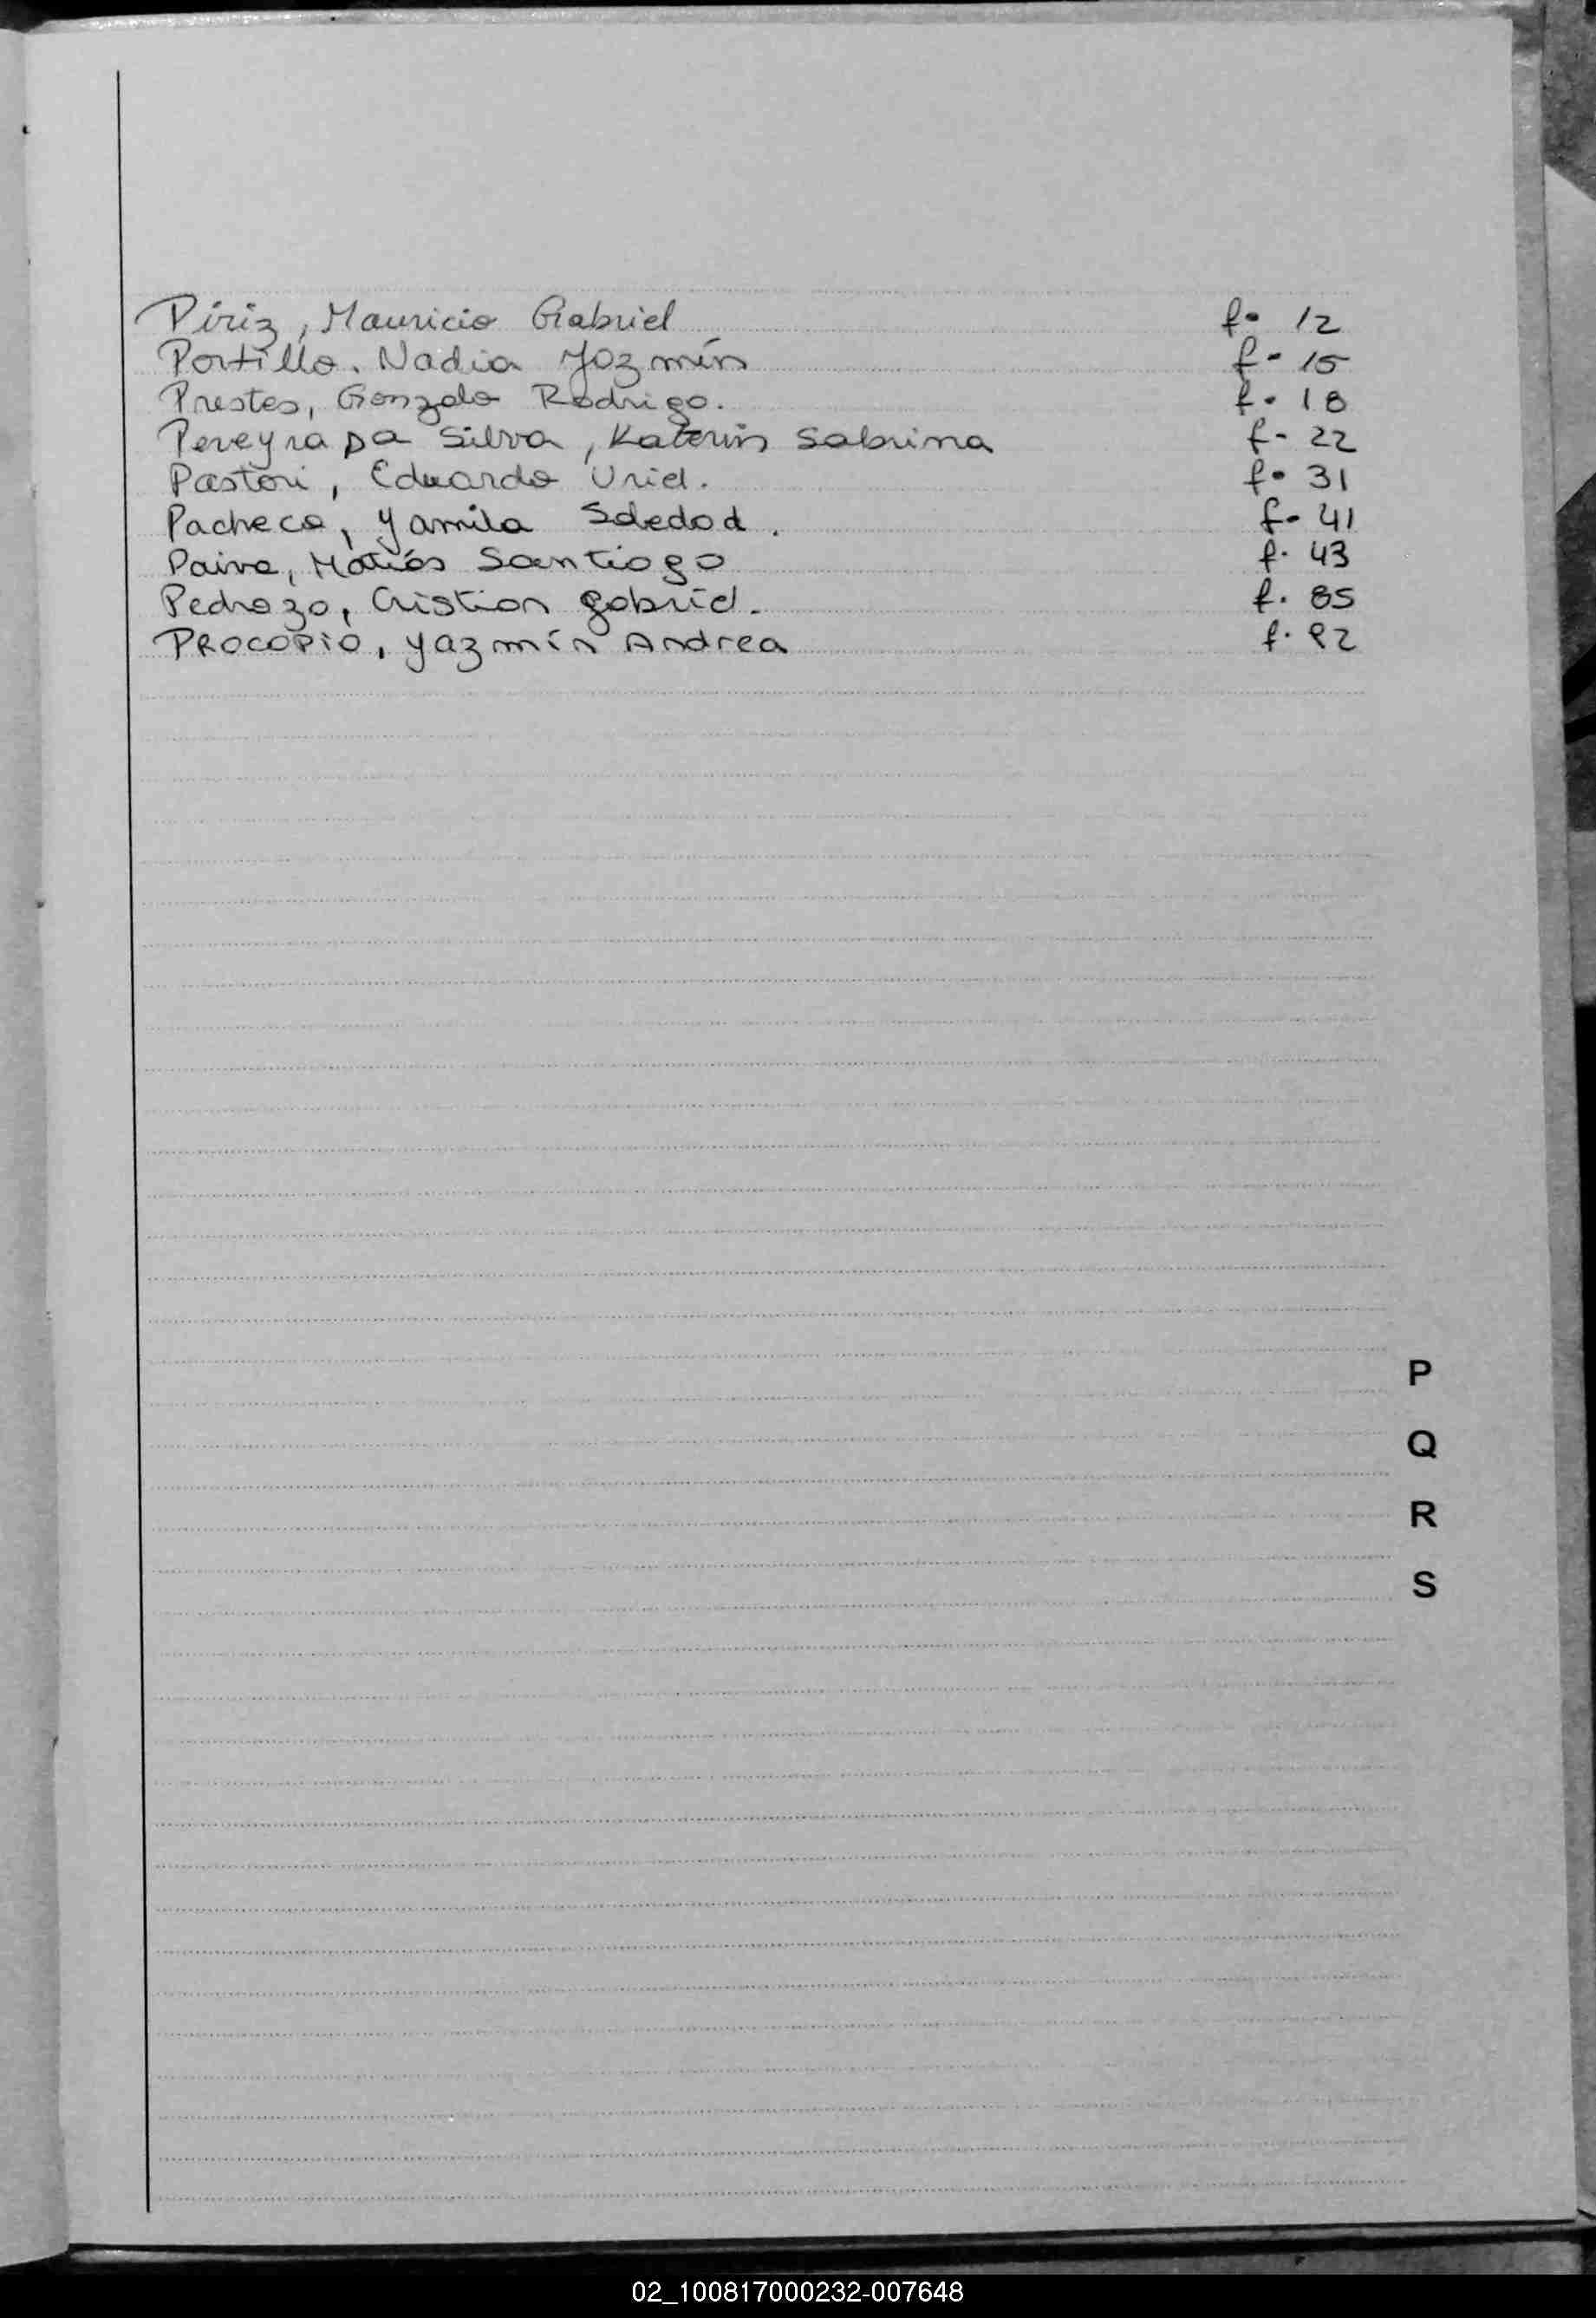 Piriz, Mauricio Gabriel f. 12
Portillo. Nadia Yazmín f. 15
Prestes, Gonzalo Rodrigo. f. 18
Pereyra Da Silva, Katerin Sabrina f. 22
Pastori, Eduardo Uriel. f. 31
Pacheco, Yamila Soledad. f. 41
Paiva, Matiás Santiago f. 43
Pedrozo, Cristian Gabriel. f. 85
PROCOPIO, Yazmín Andrea f. 92
P
Q
R
S
02_100817000232-007648